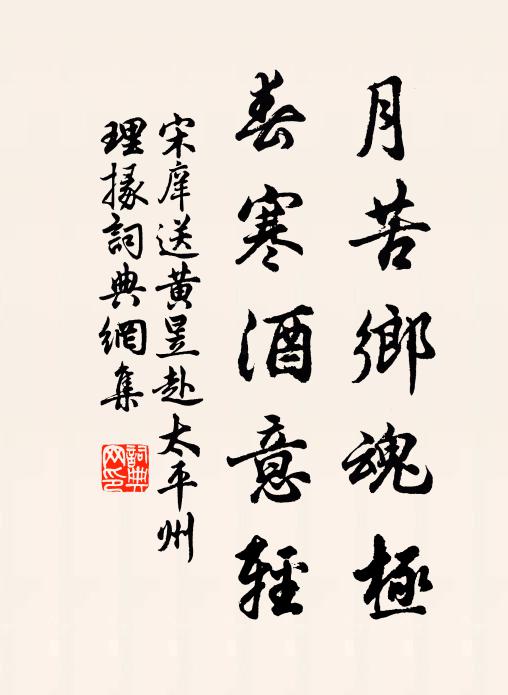 月苦鄉魂極
春寒酒意輕
宋庠送黃昱赴太平州
理掾詞典網集
詞典
网印